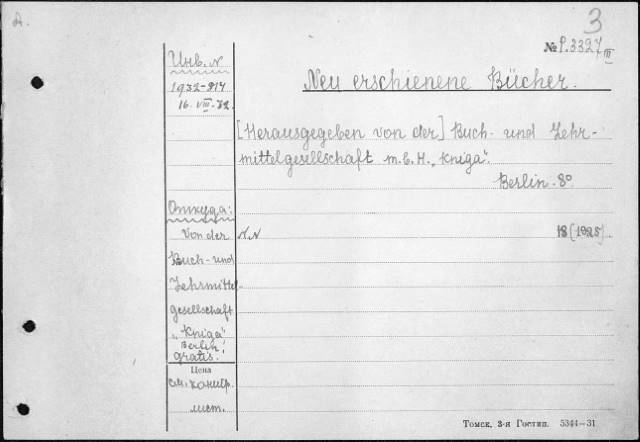 3
№ P.3327 III
Инв. N
1932-814
16. VIII-32.
Neu erschienene Bücher.
[Herausgegeben von der] Buch- und Lehr-
mittelgesellschaft m.b.H. „Kniga“.
Berlin. 8°
Откуда:
Von der
Buch- und
Lehrmittel-
gesellschaft
„Kniga“
Berlin!
gratis.!
N.N 18 (1925)
Цена
см. контр.
лист.
Томск, 3-я Гостип. 5344—31